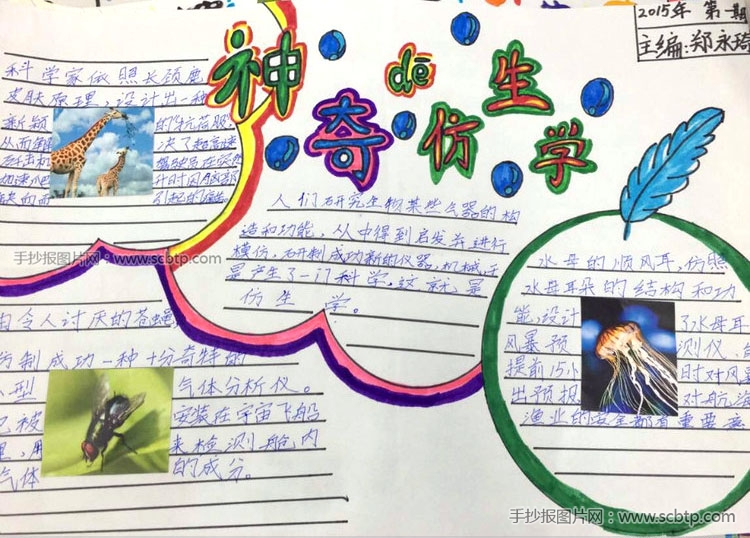 2015年 第一期
主编:郑永琦
神奇dē仿生学
科学家依照长颈鹿
皮肤原理,设计出一种
新颖的“抗荷服”
从而解决了超高速
歼击机驾驶员在突然
加速爬升时因脑部
缺血而引起的痛
人们研究生物某些器的构
造和功能,从中得到启发并进行
模仿,研制成功新的仪器,机械,于
是产生了一门科学,这就是
仿生学。
水母的顺风耳,仿照
水母耳朵的结构和功
能,设计了水母耳
风暴预测仪,
提前15小时对风暴
出预报对航海
渔业的安全都有重要意
令人讨厌的苍蝇,
仿制成功一种十分奇特的
小型气体分析仪。
已被安装在宇宙飞船
里,用来检测船内
气体的成分。
手抄报图片网:www.scbtp.com
手抄报图片网:www.scbtp.com